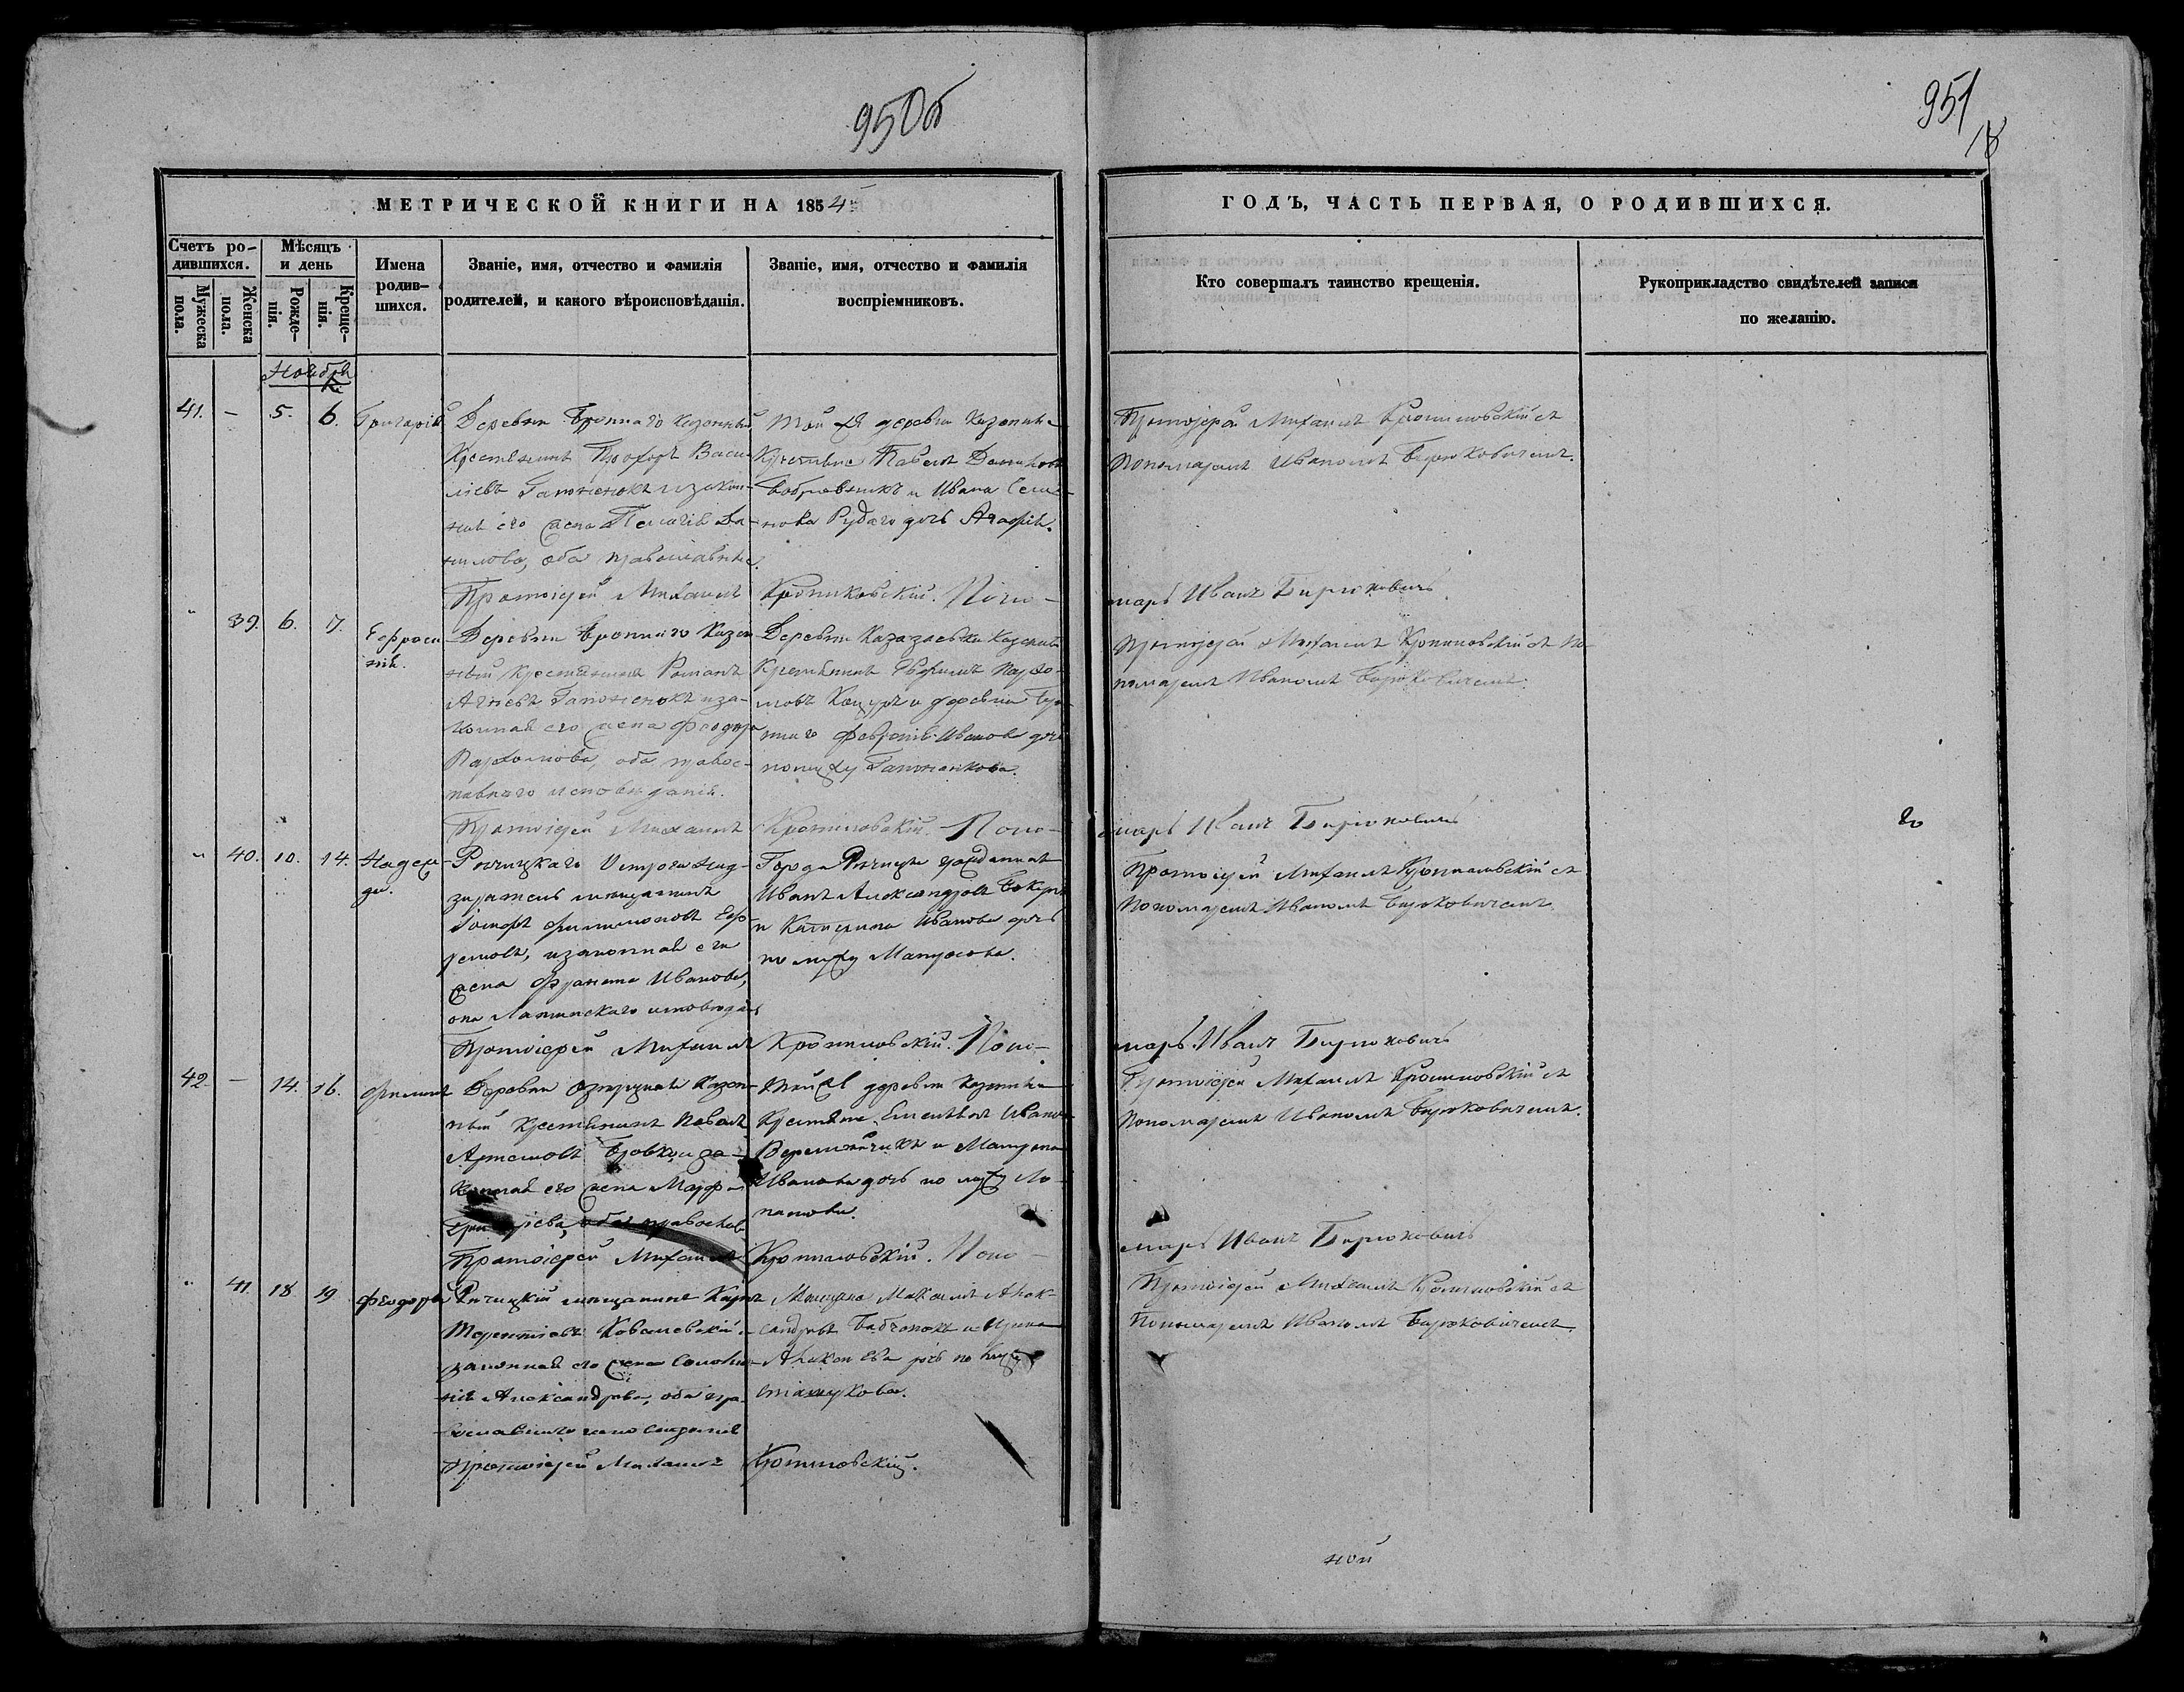 950об
951
18
МЕТРИЧЕСКОЙ КНИГИ НА 1854
ГОДЪ, ЧАСТЬ ПЕРВАЯ, О РОДИВШИХСЯ.
Счетъ ро-
дившихся.
Мужеска
пола.
Женска
пола.
Мѣсяцъ
и день
Рожде-
нія.
Креще-
нія.
Имена
родив-
шихся.
Званіе, имя, отчество и фамилія
родителей, и какого вѣроисповѣданія.
Званіе, имя, отчество и фамилія
воспріемниковъ.
Кто совершалъ таинство крещенія.
Рукоприкладство свидѣтелей записи
по желанію.
Ноября
41. - 5. 6. Григорій
Деревни казенный
Крестьянинъ Прохоръ Васи-
ліевъ Гапоненокъ и закон-
ная его жена Пелагія Да-
нилова, оба православные.
Той же деревни казенные
Крестьяне Павелъ
Бобровникъ и Ивана Семе-
нова Рудаго дочь Агафія.
Протоіерей Михаилъ Кропиловскій съ
Пономаремъ Иваномъ Бирюковичемъ.
Протоіерей Михаилъ Кропиловскій. Поно-
марь Иванъ Бирюковичъ.
" 39. 6. 7. Евфроси-
нія.
Деревни казен-
ный крестьянинъ Романъ
Гапоненокъ и за-
конная его жена Феодора
Пархомова, оба правос-
лавнаго исповѣданія.
Деревни Казазаевки казенный
Крестьянинъ Пархо-
мовъ и деревни
Иванова дочь
по мужу Гапоненкова.
Протоіерей Михаилъ Кропиловскій съ По-
номаремъ Иваномъ Бирюковичемъ.
Протоіерей Михаилъ Кропиловскій. Поно-
марь Иванъ Бирюковичъ
" 40. 10. 14. Надеж-
да.
Рѣчицкаго Острога над-
зиратель мѣщанинъ
Филимоновъ Еф-
ремовъ, и законная его
жена Иванова,
она Латинскаго исповѣданія
Города Рѣчицы гражданинъ
Иванъ Александровъ
и Катерина Иванова дочь
по мужу Матусова.
Протоіерей Михаилъ Кропиловскій съ
Пономаремъ Иваномъ Бирюковичемъ.
Протоіерей Михаилъ Кропиловскій. Поно-
марь Иванъ Бирюковичъ
42. - 14. 16. Филиппъ
Деревни Озерщины Казен-
ный Крестьянинъ Павелъ
Артемовъ Бровко и за-
конная его жена Марфа
Григорьева, оба православ.
Той же деревни казенные
Крестьяне Емельянъ Иванов
Веремейчикъ и Матрона
Иванова дочь по мужу Ло-
Протоіерей Михаилъ Кропиловскій съ
Пономаремъ Иваномъ Бирюковичемъ.
Протоіерей Михаилъ Кропиловскій. Поно-
марь Иванъ Бирюковичъ
" 41. 18 19 Феодора
Рѣчицкій мѣщанинъ Карпъ
Терентіевъ Ковалевскій и
законная его жена Соломо-
нія Александрова, оба пра-
вославнаго исповѣданія
Мѣщане Максимъ Алек-
сандровъ Бабченокъ и Ирина
дочь по мужу
Протоіерей Михаилъ Кропиловскій съ
Пономаремъ Иваномъ Бирюковичемъ.
Протоіерей Михаилъ Кропиловскій.
ной